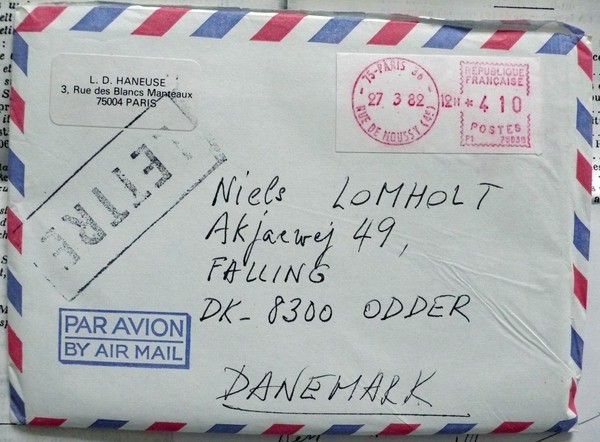 L. D. HANEUSE
3, Rue des Blancs Manteaux
75004 PARIS
75-PARIS 36
27 3 82
12H
RUE DE MOUSSY (4e)
REPUBLIQUE
FRANÇAISE
* 4 10
POSTES
LETTRE
Niels LOMHOLT
Akjaervej 49,
FALLING
DK-8300 ODDER
DANEMARK
PAR AVION
BY AIR MAIL